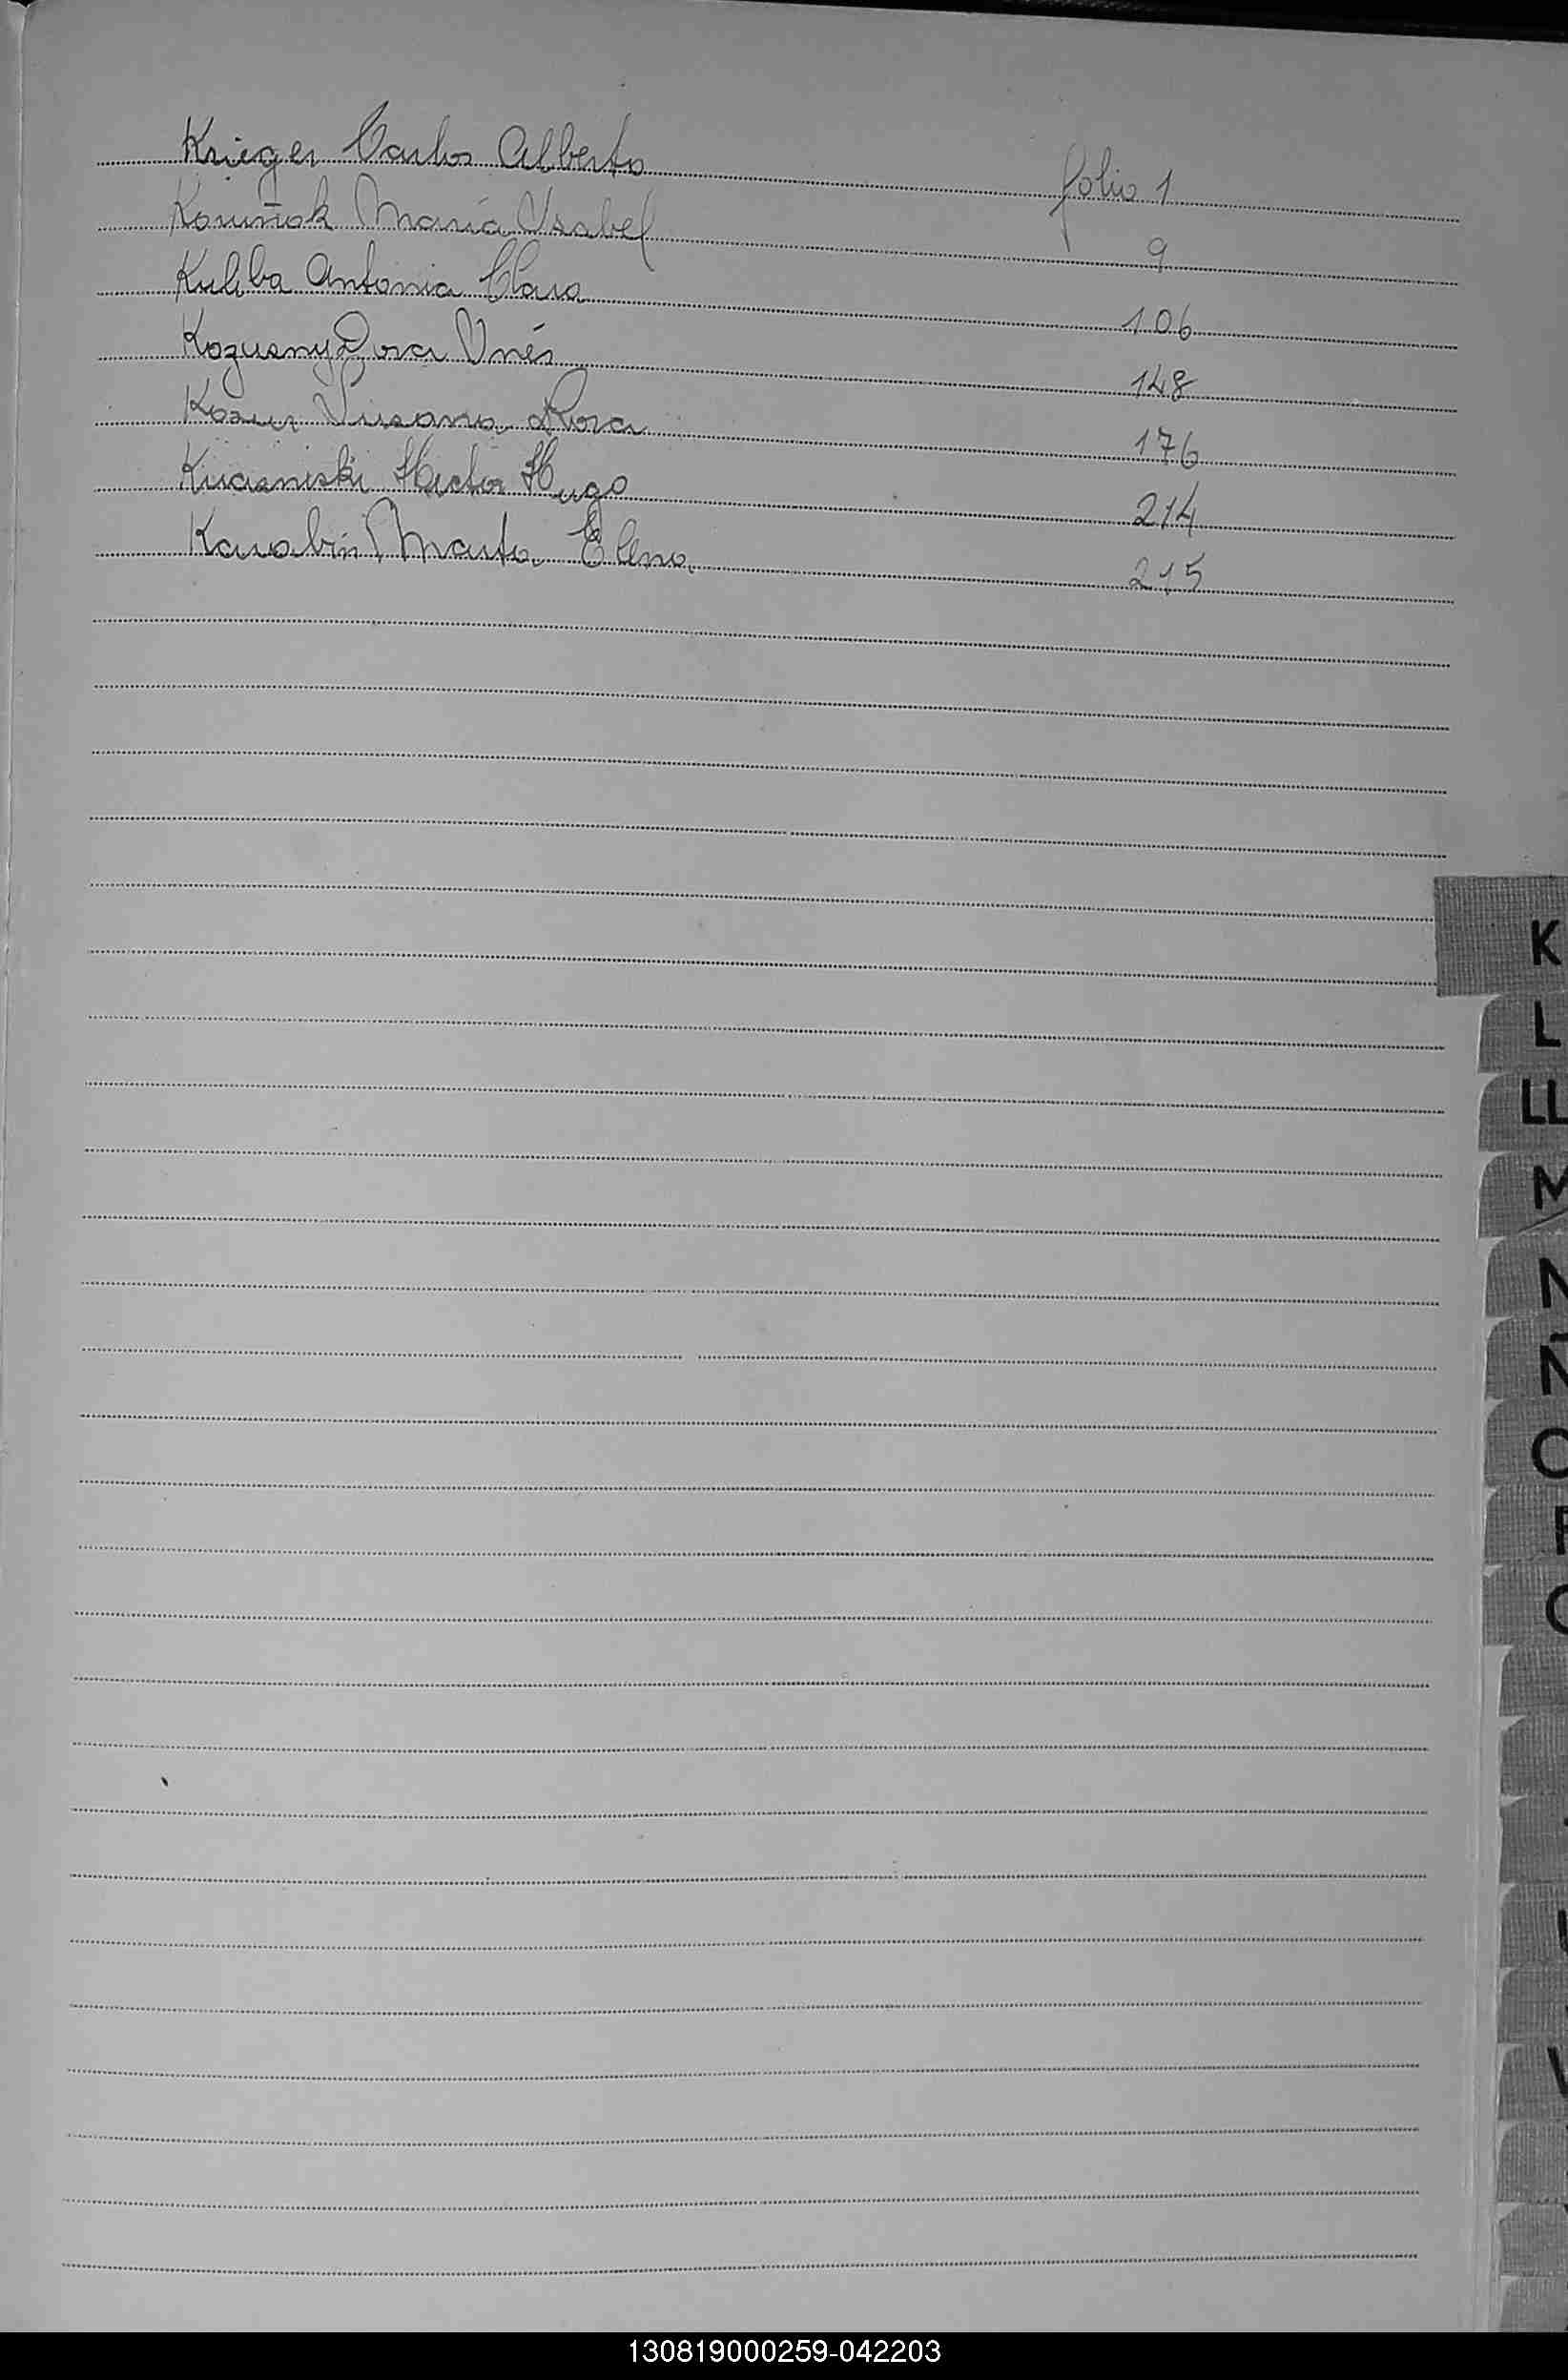 Krieger Carlos Alberto folio 1
María Isabel 9
Kuliba Antonia Clara 106
Kozusny Dora Inés 148
Kozur Susana Rosa 176
Héctor Hugo 214
Karabin Marta Elena 215
K
L
LL
M
N
Ñ
O
P
130819000259-042203